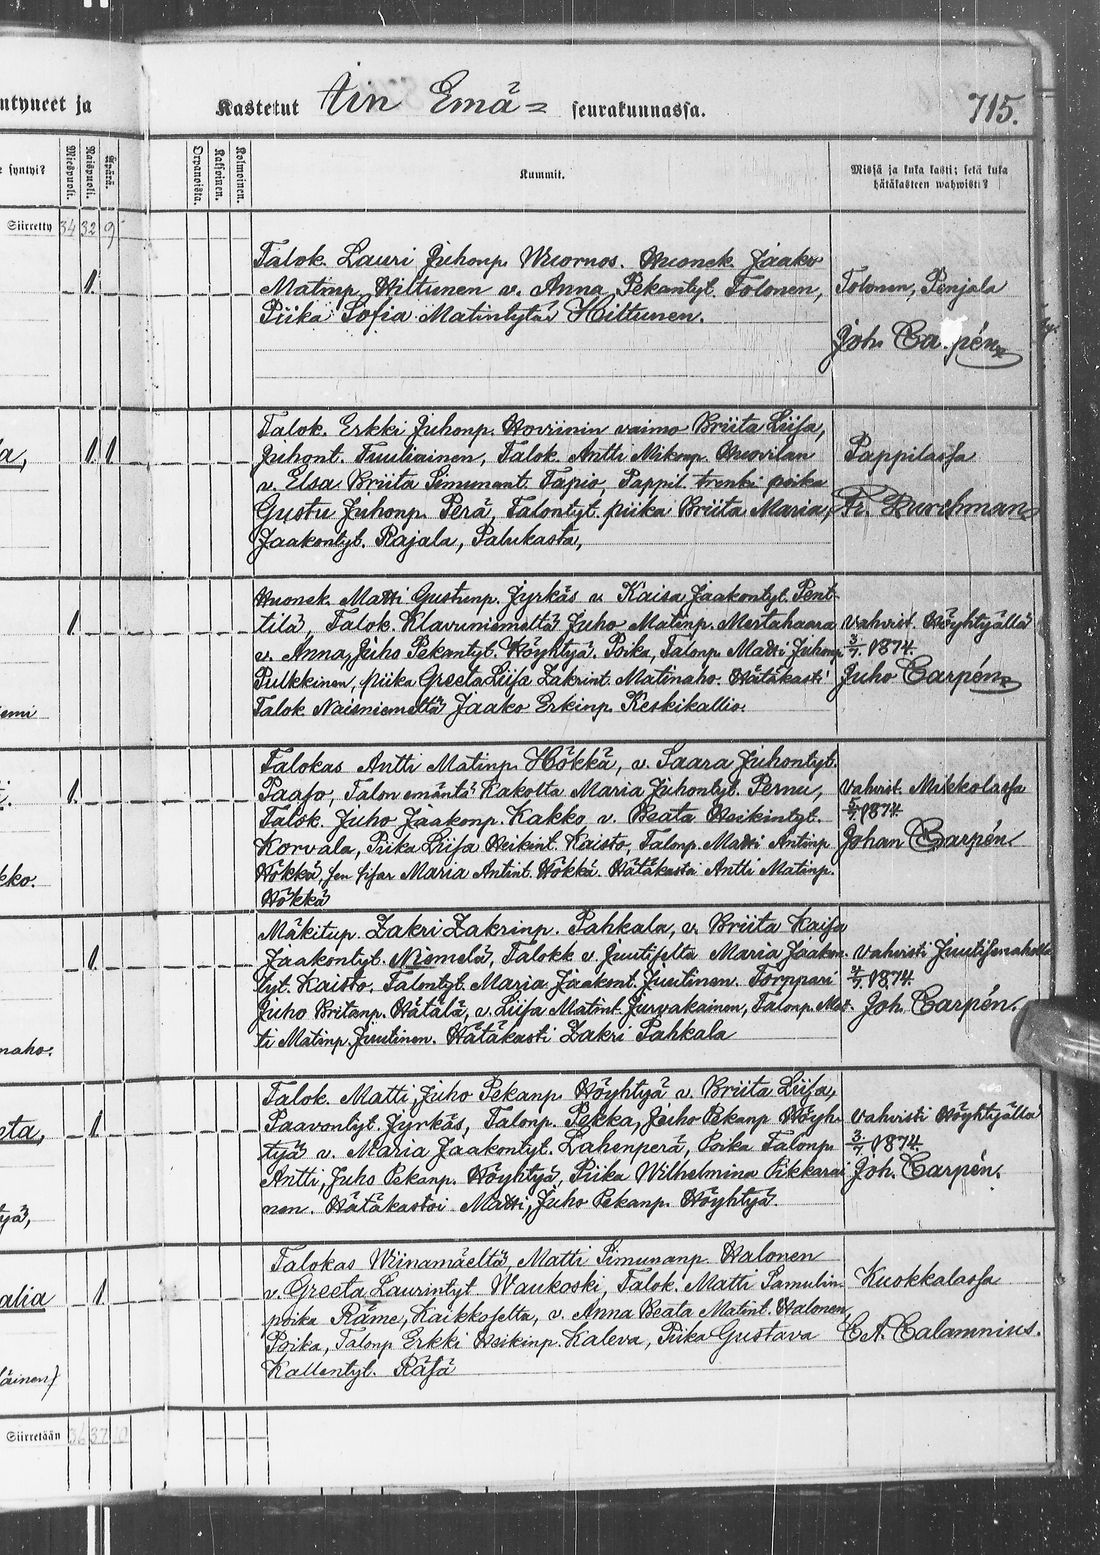 ntyneet ja
Kastetut Iin Emä= seurakunnassa. 715.
e syntyi? Miespuoli. Naispuoli. Äpärä. Orvanoista. Kaksoinen. Kolmoinen. Kummit. Missä ja kuka kasti; sekä kuka
hätäkasteen wahwisti?
Siirretty 34 32 9
Talok. Lauri Juhonp. Wuornos. Huonek. Jaako
1 Matinp. Hiltunen v. Anna Pekantyt. Tolonen, Tolonen, Penjala
Piika Sofia Matintytär Hiltunen.
Joh. Ca pén
Talok. Erkki Juhonp. Hoviinin vaimo Briita Liisa,
a, 1 1 Juhont. Tuuliainen, Talok. Antti Mikonp. Huovilan Pappilassa
v. Elsa Briita Simunant. Tapio, Pappil. trenki poika
Gustu Juhonp. Perä, Talontyt. piika Briita Maria, Fr. Burchman
Jaakontyt. Rajala, Palukasta,
Huonek. Matti Gustunp. Jyrkäs v. Kaisa Jaakontyt. Pent-
1 tilä, Talok. Klavuniemeltä Juho Matinp. Mertahaara vahvist. Höyhtyällä
v. Anna, Juho Pekantyt. Höyhtyä. Poika, Talonp. Matti Juhonp. 3/1 1874.
Pulkkinen, piika Greeta Liisa Zakrint. Matinaho. Hätäkasti Juho Carpén
iemi Talok. Naisniemeltä Jaako Erkinp. Keskikallio.
Talokas Antti Matinp. Hökkä, v. Saara Juhontyt.
i. 1. Paaso, Talon emäntä Kakolta Maria Juhontyt. Pernu, vahvist. Mikkolassa
Talok. Juho Jaakonp. Kakko v. Beata Heikintyt. 5/1 1874.
Korvala, Piika Liisa Heikint. Kaisto, Talonp. Matti Antinp. Johan Carpén.
kko. Hökkä, Maria Antint. Hökkä. Hätäkasta Antti Matinp.
Hökkä
Mäkitup. Zakri Zakrinp. Pahkala, v. Briita Kaisa
1 Jaakontyt. Niemelä, Talokk v. Juutiselta Maria Jaakon- vahvisti Juutisenaholla
tyt. Kaisto. Talontyt. Maria Jaakont. Juutinen. Torppari 4/1 1874.
Juho Britanp. Hätälä, v. Liisa Matint. Jurvakainen, Talonp. Mat- Joh. Carpén.
naho. ti Matinp. Juutinen. Hätäkasti Zakri Pahkala
Talok. Matti, Juho Pekanp. Höyhtyä v. Briita Liisa,
eta, 1 Paavontyt. Jyrkäs, Talonp. Pekka, Juho Pekanp. Höyh- vahvisti Höyhtyällä
tyä v. Maria Jaakontyt. Lahenperä, Poika Talonp. 3/1 1874.
Antti, Juho Pekanp. Höyhtyä, Piika Wilhelmina Pikkarai- Joh. Carpén.
tyä, nen. Hätäkastoi Matti, Juho Pekanp. Höyhtyä.
Talokas Wiinamäeltä, Matti Simunanp. Halonen
alia 1 v. Greeta Laurintyt Waukoski, Talok. Matti Samulin- Kuokkalassa
poika Räme, Kaikkoselta, v. Anna Beata Matint. Halonen,
Poika, Talonp. Erkki Heikinp. Kaleva, Piika Gustava C. A. Calamnius.
läinen) Kallentyt. Räsä
Siirretään 36 37 10